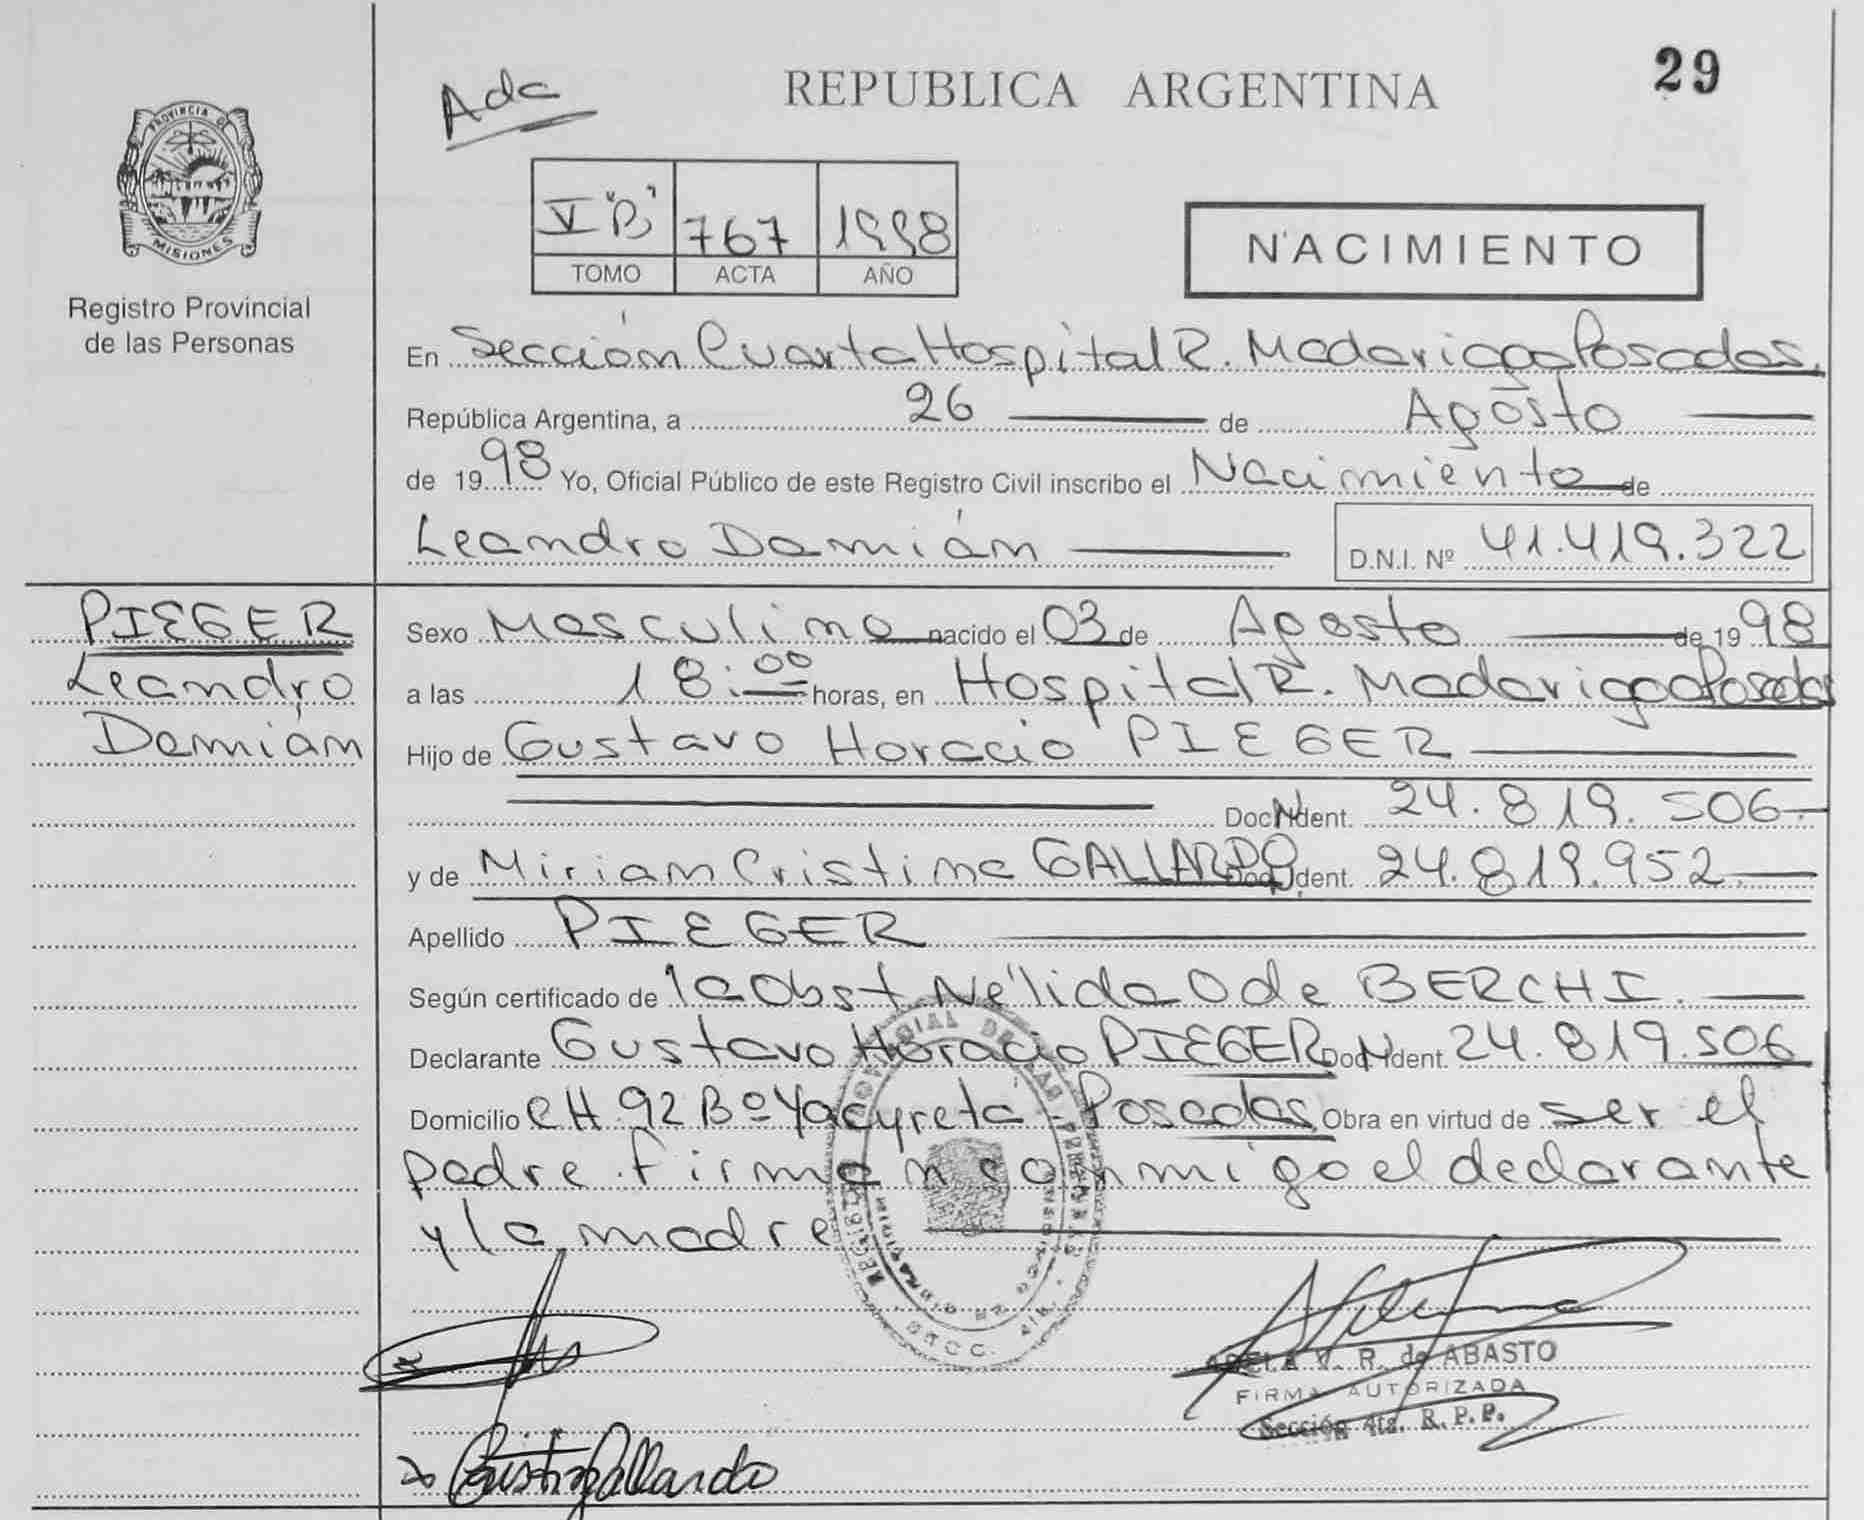 29
Ada
REPUBLICA ARGENTINA
PROVINCIA DE
MISIONES
Registro Provincial
de las Personas
V "B" 767 1998
TOMO ACTA AÑO
NACIMIENTO
En Sección Cuarta Hospital R. Madariaga Posadas.
República Argentina, a 26 de Agosto
de 1998 Yo, Oficial Público de este Registro Civil inscribo el Nacimiento de
Leandro Damián D.N.I. Nº 41.419.322
PIEGER
Leandro
Damián
Sexo Masculino nacido el 03 de Agosto de 1998
a las 18:00 horas, en Hospital R. Madariaga Posadas
Hijo de Gustavo Horacio PIEGER
Doc. N. Ident. 24.819.506
y de Miriam Cristina GALLARDO Doc. Ident. 24.819.952
Apellido PIEGER
Según certificado de la Obst Nélida O de BERCHI.
Declarante Gustavo Horacio PIEGER Doc. N. Ident. 24.819.506
Domicilio CH. 92 Bº Yacyretá - Posadas Obra en virtud de ser el
padre. Firman conmigo el declarante
y la madre
REGISTRO PROVINCIAL DE LAS PERSONAS
ADELA V. R. de ABASTO
FIRMA AUTORIZADA
Sección 4ta. R. P. P.
Cristina Gallardo